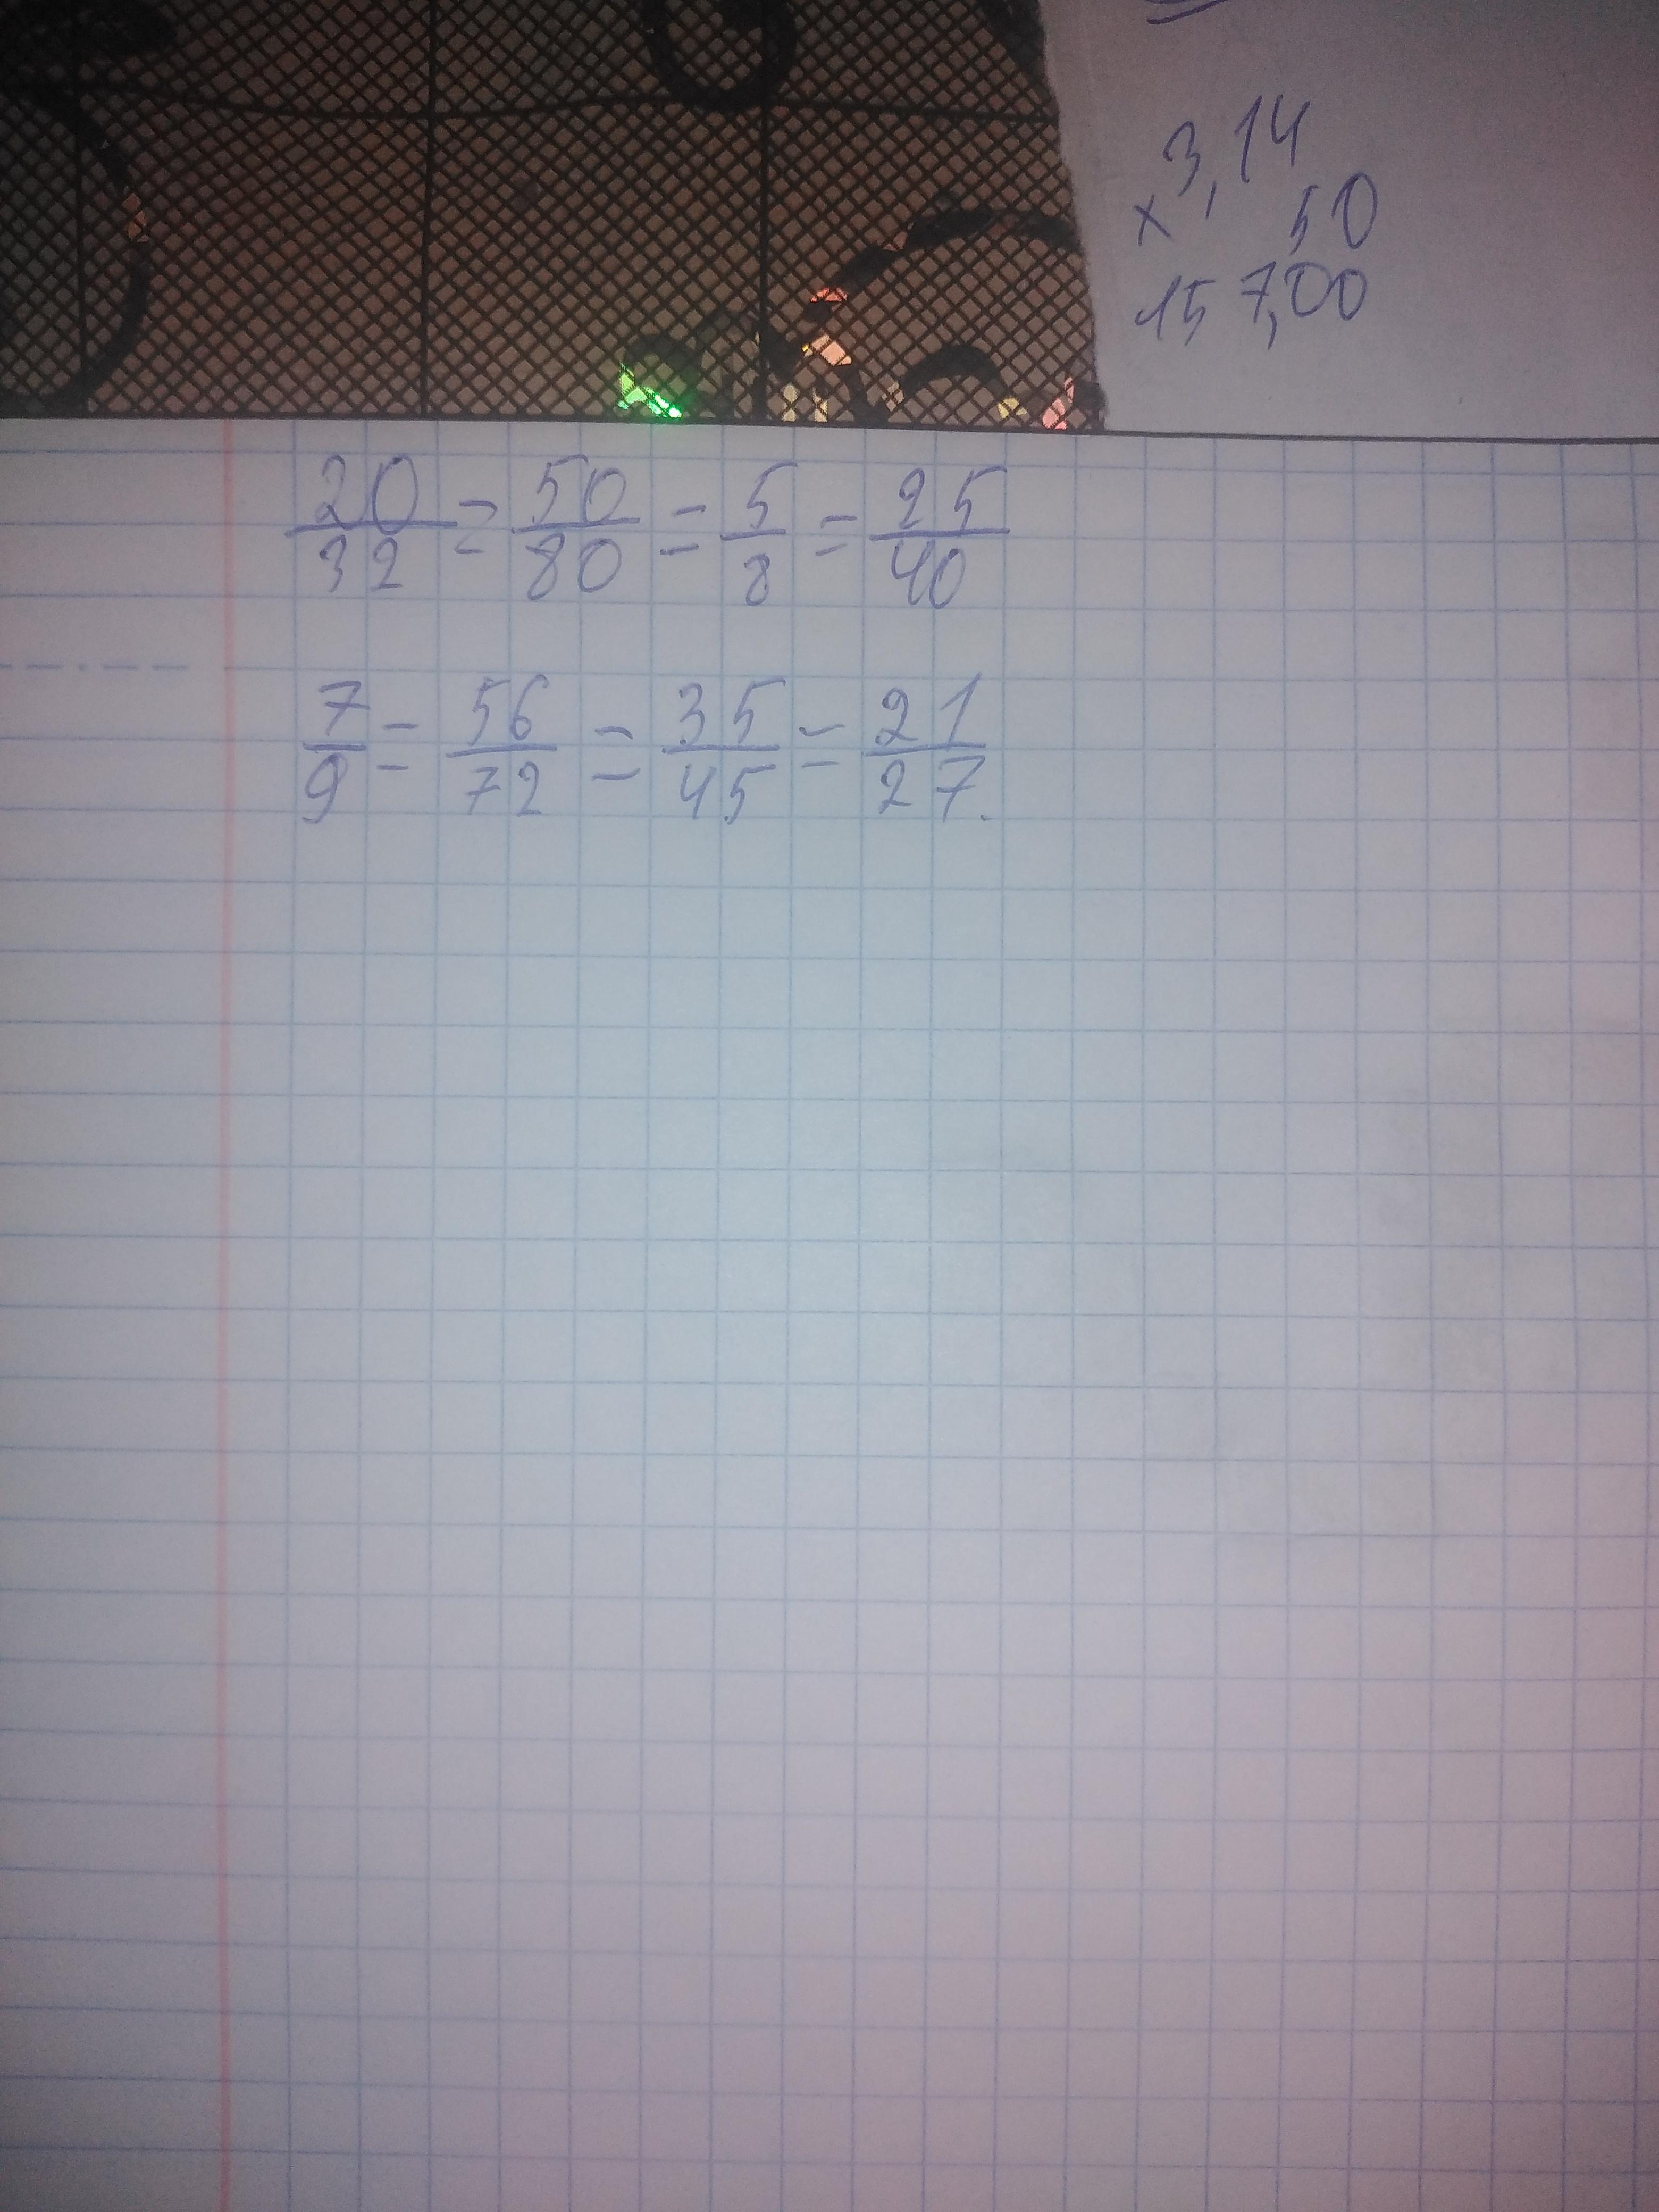 3,14
× 50
157,00
20/32 = 50/80 = 5/8 = 25/40
7/9 = 56/72 = 35/45 = 21/27.